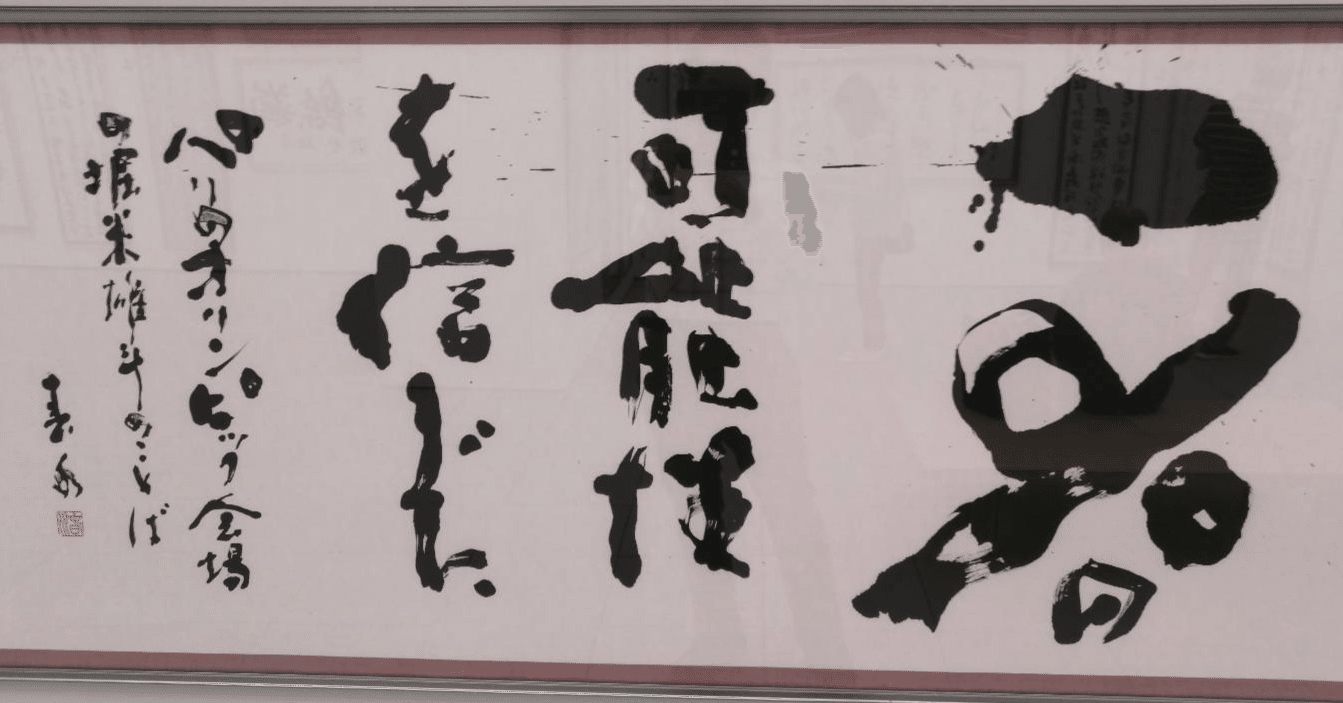 一%の
可能性
を信じた
パリのオリンピック会場
の堀米雄斗のことば